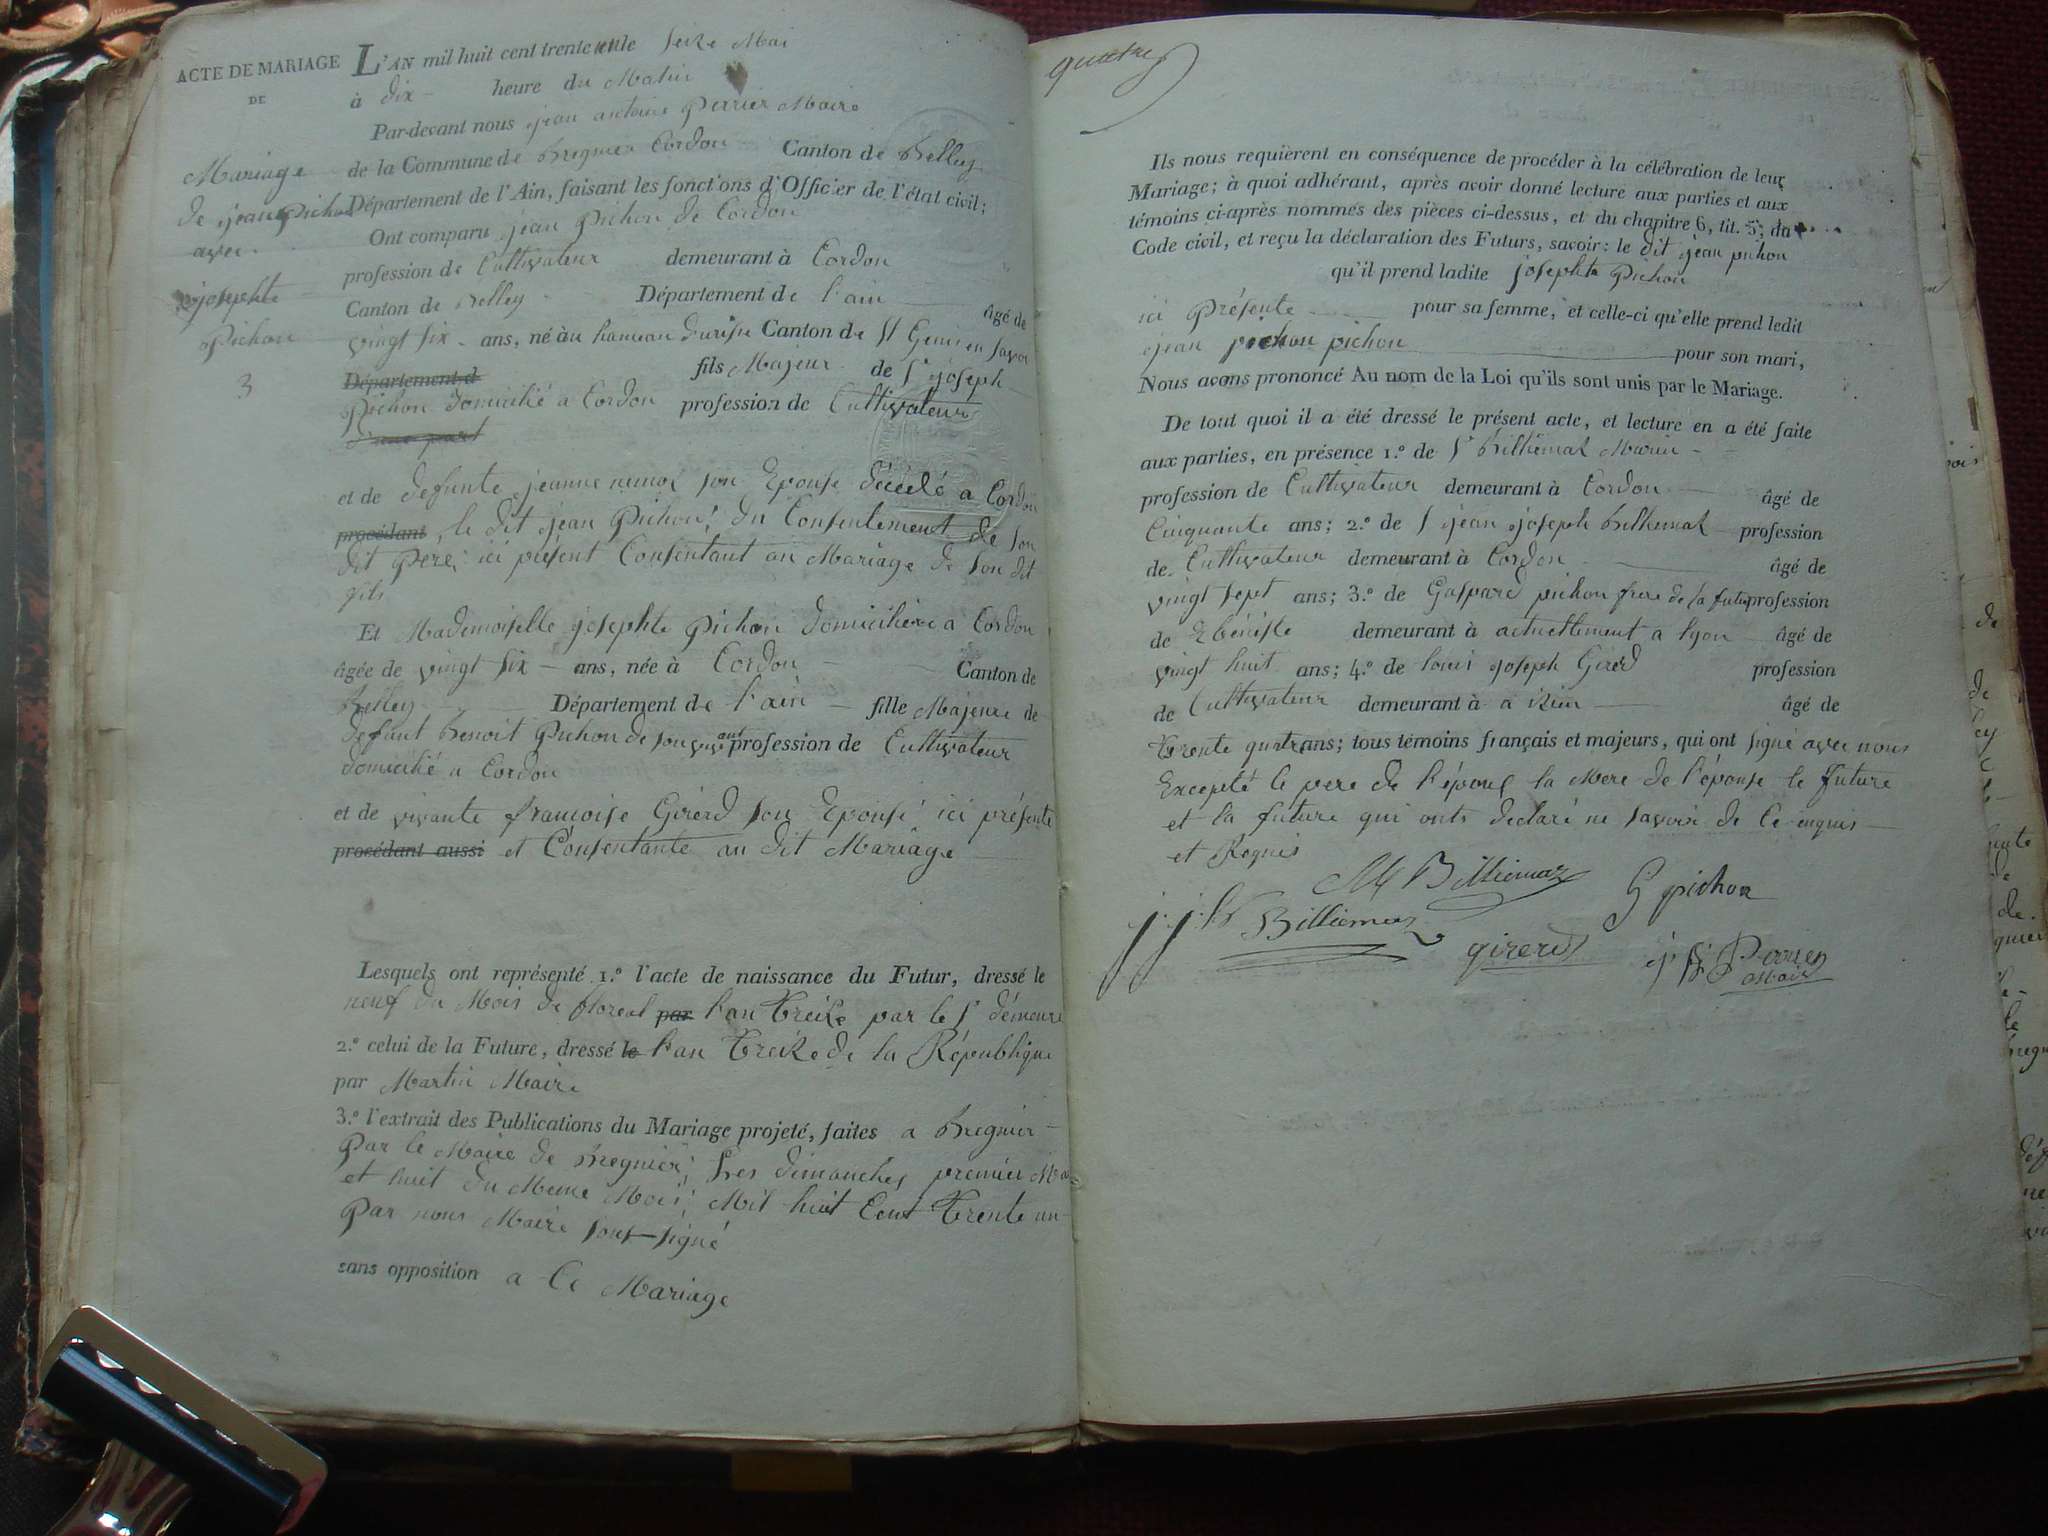 ACTE DE MARIAGE
DE
Mariage
de jean Pichon
avec
josephte
Pichon
3
L'AN mil huit cent trente un le seize Mai
à dix heure du Matin
Par-devant nous jean antoine Perrier Maire
de la Commune de Bregnier Cordon Canton de Belley
Département de l'Ain, faisant les fonctions d'Officier de l'état civil;
Ont comparu jean Pichon de Cordon
profession de Cultivateur demeurant à Cordon
Canton de Belley Département de l'ain âgé de
vingt six ans, né au hameau Canton de St Genis en Savoi
Département d fils Majeur de Sr joseph
Pichon domicilié a Cordon profession de Cultivateur
et de defunte jeanne son Epouse décédé a Cordon
procédant, le dit jean Pichon, du Consentement de son
dit Pere, ici présent Consentant au Mariage de son dit
fils
Et Mademoiselle josephte Pichon domiciliée a Cordon
âgée de vingt six ans, née à Cordon Canton de
Belley Département de l'ain fille Majeure de
defunt Benoit Pichon de son vivant profession de Cultivateur
domicilié a Cordon
et de vivante françoise Girerd son Epouse ici présente
procédant aussi et Consentante au dit Mariage
Lesquels ont représenté 1.º l'acte de naissance du Futur, dressé le
neuf du Mois de floreal par l'an treize par le Sr
2.º celui de la Future, dressé le l'an treize de la République
par Martin Maire
3.º l'extrait des Publications du Mariage projeté, faites a Bregnier
Par le Maire de Bregnier, Les dimanches premier Mai
et huit du Meme Mois, Mil huit Cent trente un
Par nous Maire sous-signé
sans opposition a Ce Mariage
quatre
Ils nous requièrent en conséquence de procéder à la célébration de leur
Mariage; à quoi adhérant, après avoir donné lecture aux parties et aux
témoins ci-après nommés des pièces ci-dessus, et du chapitre 6, tit. 5, du
Code civil, et reçu la déclaration des Futurs, savoir: le dit jean pichon
qu'il prend ladite josephte Pichon
ici Présente pour sa femme, et celle-ci qu'elle prend ledit
jean pichon pichon pour son mari,
Nous avons prononcé Au nom de la Loi qu'ils sont unis par le Mariage.
De tout quoi il a été dressé le présent acte, et lecture en a été faite
aux parties, en présence 1.º de Sr Billiemaz Marin
profession de Cultivateur demeurant à Cordon âgé de
Cinquante ans; 2.º de S jean joseph Billiemaz profession
de Cultivateur demeurant à Cordon âgé de
vingt sept ans; 3.º de Gaspard pichon frere de la future profession
de Ebéniste demeurant à actuellement a lyon âgé de
vingt huit ans; 4.º de louis joseph Girerd profession
de Cultivateur demeurant à a izieu âgé de
trente quatre ans; tous témoins français et majeurs, qui ont signé avec nous
Excepté le pere de l'époux la Mere de l'épouse le future
et la future qui onts declaré ne savoir de Ce enquis
et Requis
M Billiemaz
G pichon
j. j. Billiemaz
girerd
Perrier
Maire